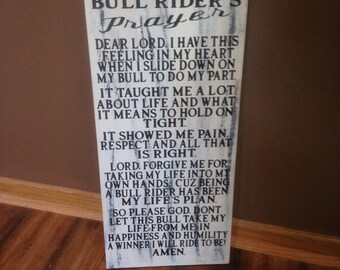 BULL RIDER'S
Prayer
DEAR LORD, I HAVE THIS
FEELING IN MY HEART
WHEN I SLIDE DOWN ON
MY BULL TO DO MY PART.
IT TAUGHT ME A LOT
ABOUT LIFE AND WHAT
IT MEANS TO HOLD ON
TIGHT.
IT SHOWED ME PAIN...
RESPECT AND ALL THAT
IS RIGHT.
LORD, FORGIVE ME FOR
TAKING MY LIFE INTO MY
OWN HANDS, CUZ BEING
A BULL RIDER HAS BEEN
MY LIFE'S PLAN.
SO PLEASE GOD, DONT
LET THIS BULL TAKE MY
LIFE FROM ME IN
HAPPINESS AND HUMILITY
A WINNER I WILL RIDE TO BE!
AMEN.